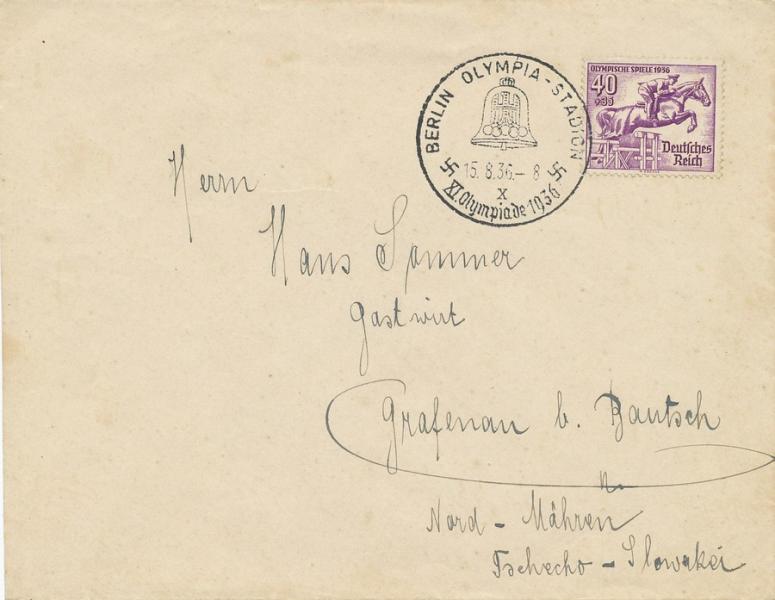 BERLIN OLYMPIA-STADION
15.8.36.- 8
x
XI. Olympiade 1936
OLYMPISCHE SPIELE 1936
40
+35
Deutsches
Reich
Herrn
Hans Sommer
Gastwirt
Grafenau b. Bautsch
n.
Nord - Mähren
Tschecho - Slowakei